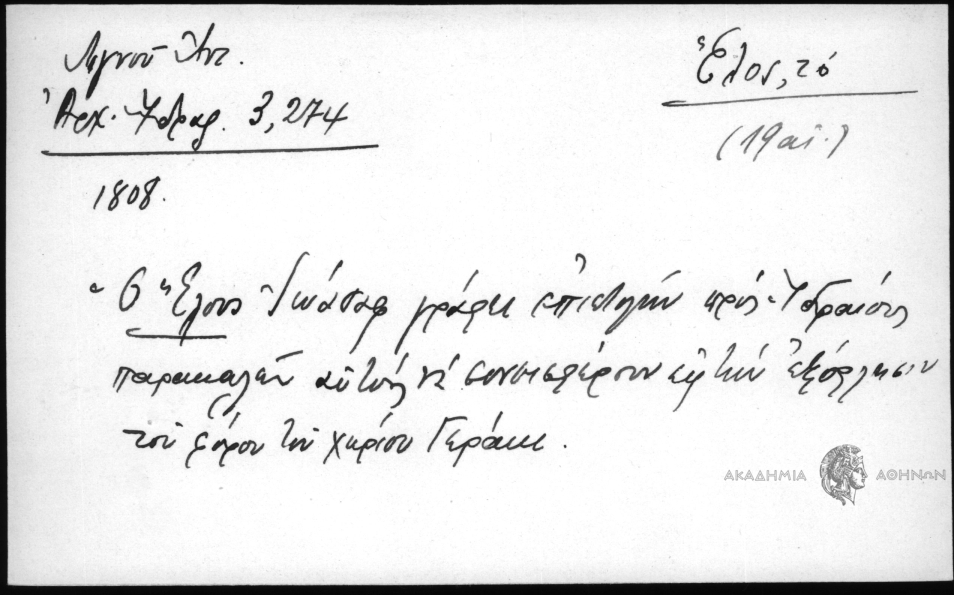 Λιγνοῦ Ἀντ.
Ἀρχ. Ὕδρας. 3,274
Ἕλος, τό
(19 αἰ.)
1808.
Ὁ Ἕλους Ἰωάσαφ γράφει ἐπιστολήν πρός Ὑδραίους
παρακαλῶν αὐτούς νά συνεισφέρουν εἰς τήν ἐξόφλησιν
τοῦ φόρου τοῦ χωρίου Γεράκι.
ΑΚΑΔΗΜΙΑ ΑΘΗΝΩΝ